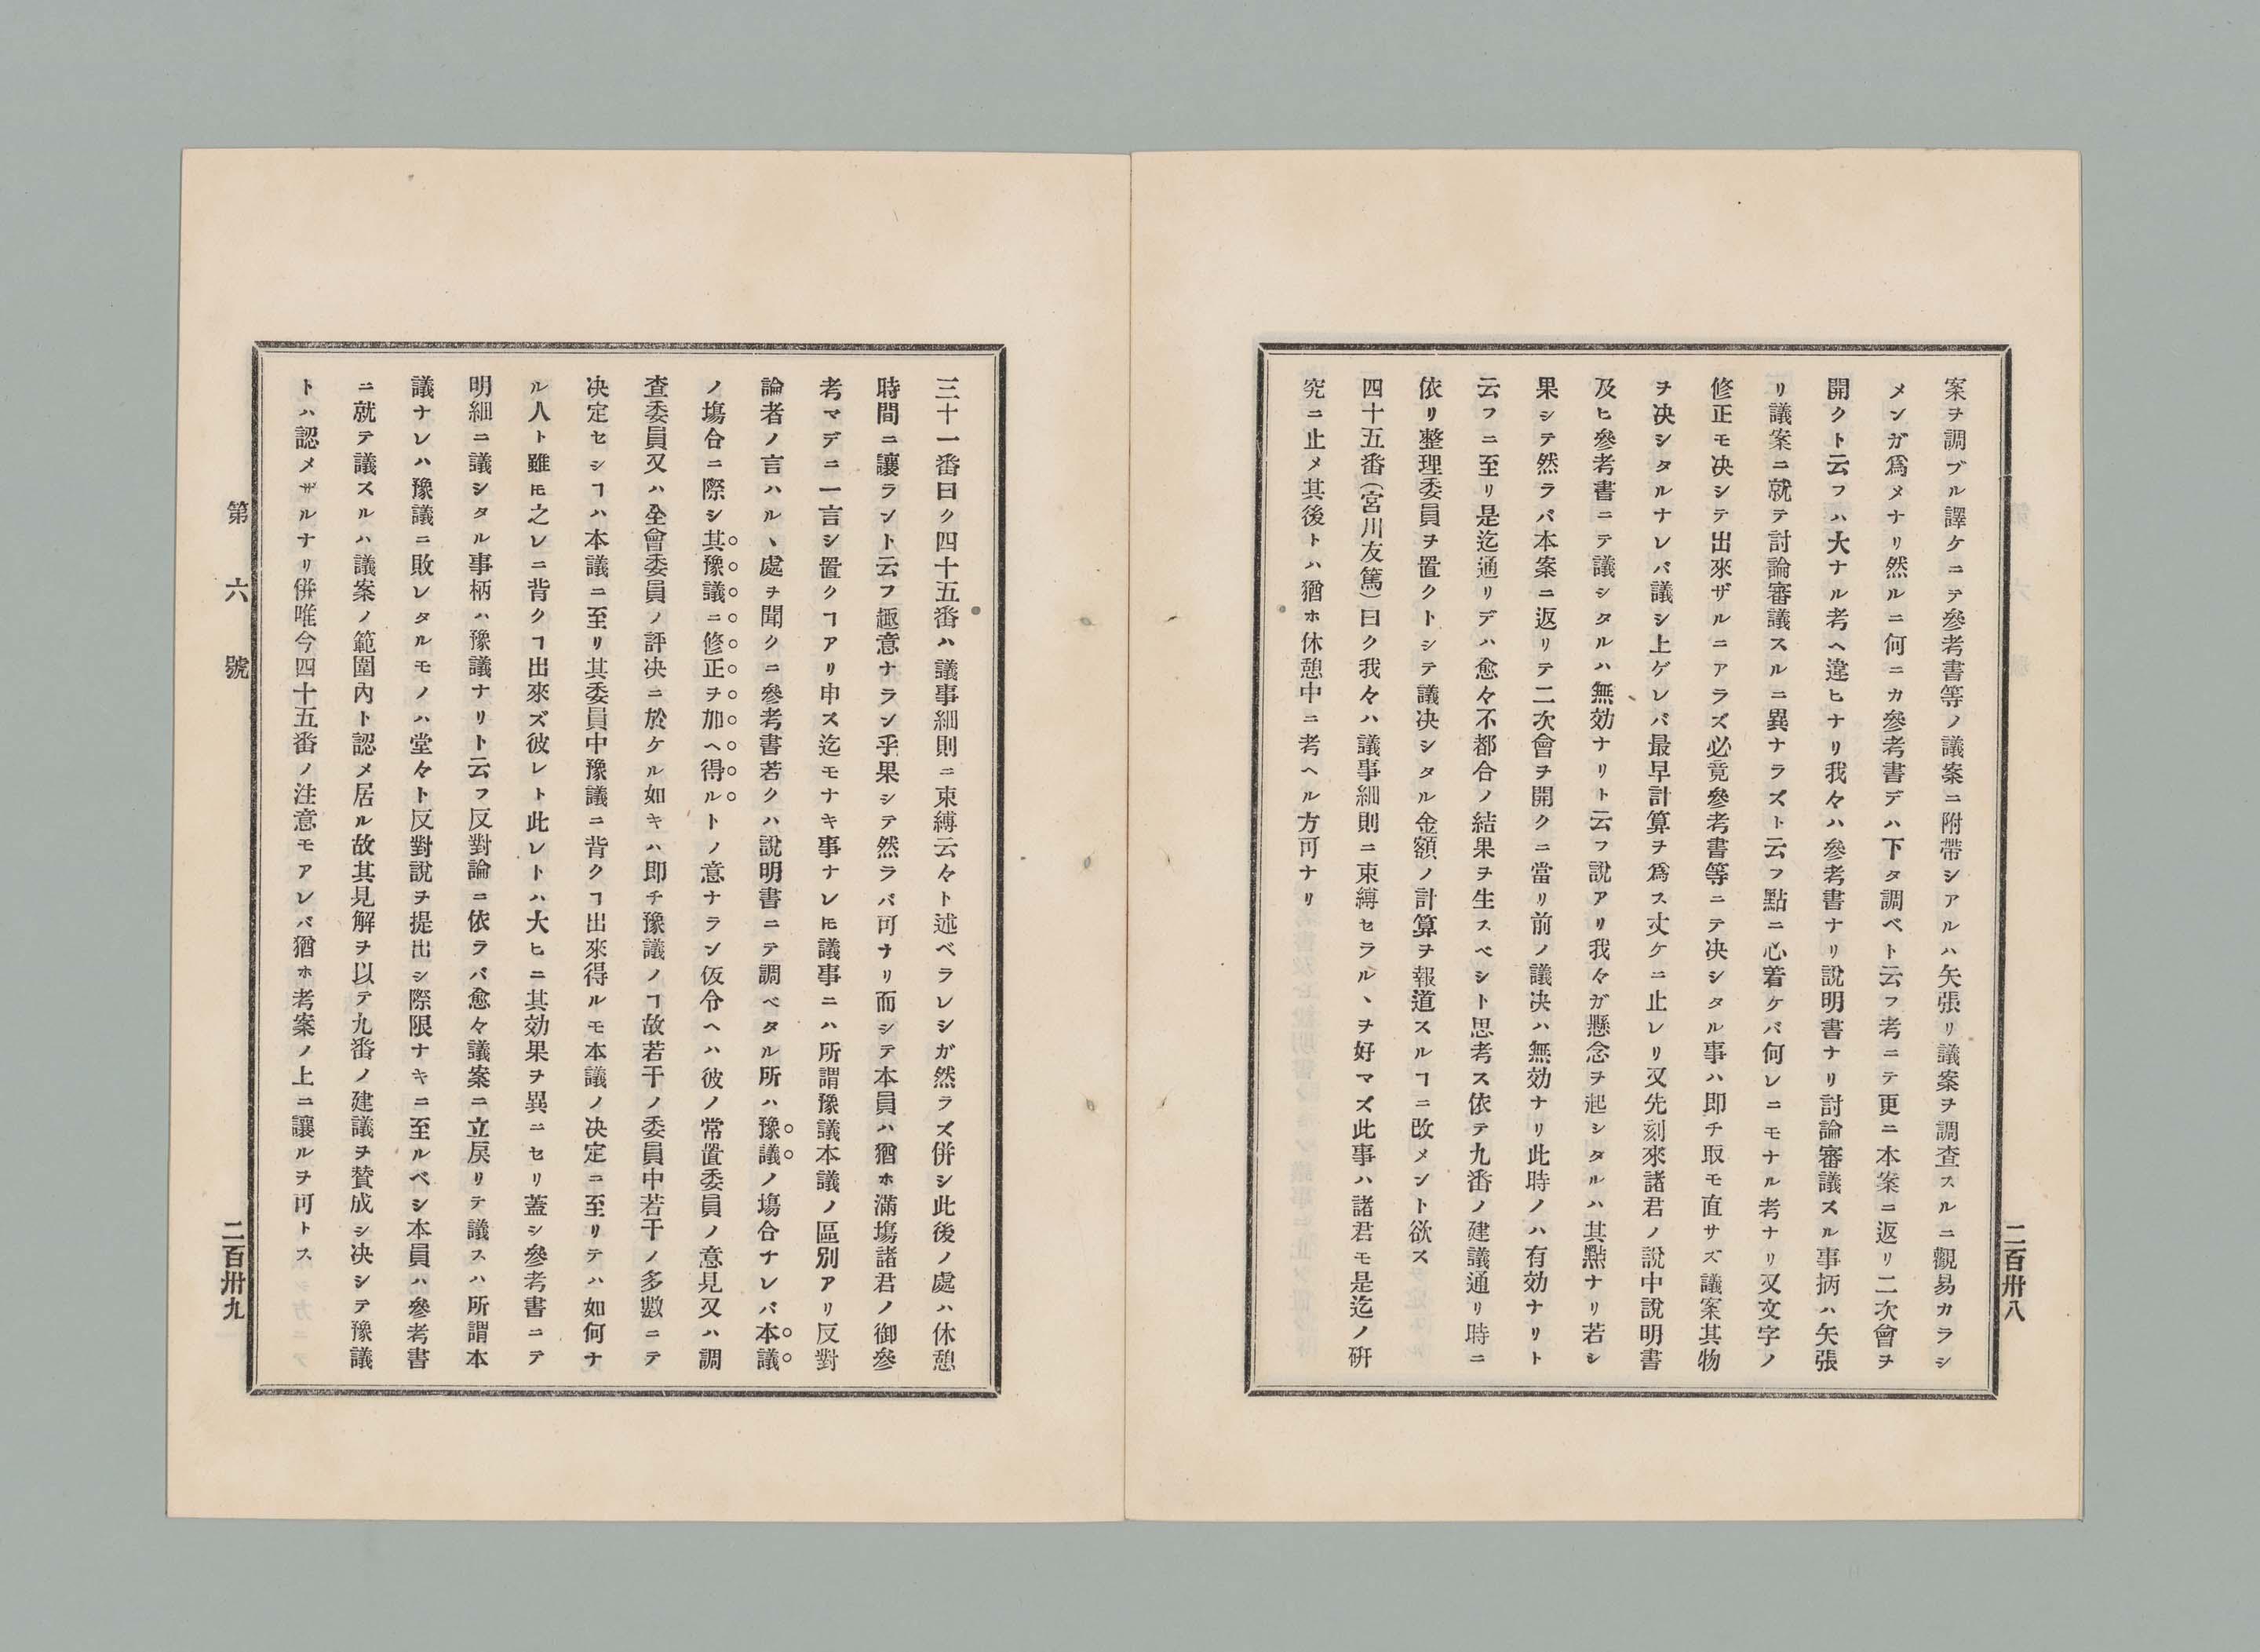 案ヲ調ブル譯ケニテ參考書等ノ議案ニ附帶シアルハ矢張リ議案ヲ調査スルニ觀易カラシ
メンガ爲メナリ然ルニ何ニカ參考書デハ下タ調ベト云フ考ニテ更ニ本案ニ返リ二次會ヲ
開クト云フハ大ナル考ヘ違ヒナリ我々ハ參考書ナリ說明書ナリ討論審議スル事抦ハ矢張
リ議案ニ就テ討論審議スルニ異ナラズト云フ點ニ心着ケバ何レニモナル考ナリ又文字ノ
修正モ决シテ出來ザルニアラズ必竟參考書等ニテ决シタル事ハ即チ取モ直サズ議案其物
ヲ决シタルナレバ議シ上ゲレバ最早計算ヲ爲ス丈ケニ止レリ又先刻來諸君ノ說中說明書
及ヒ參考書ニテ議シタルハ無効ナリト云フ說アリ我々ガ懸念ヲ起シタルハ其㸃ナリ若シ
果シテ然ラバ本案ニ返リテ二次會ヲ開クニ當リ前ノ議决ハ無効ナリ此時ノハ有効ナリト
云フニ至リ是迄通リデハ愈々不都合ノ結果ヲ生スベシト思考ス依テ九番ノ建議通リ時ニ
依リ整理委員ヲ置クトシテ議决シタル金額ノ計算ヲ報道スルヿニ改メント欲ス
四十五番(宮川友篤)曰ク我々ハ議事細則ニ束縛セラルヽヲ好マズ此事ハ諸君モ是迄ノ硏
究ニ止メ其後トハ猶ホ休憩中ニ考ヘル方可ナリ
二百卅八
三十一番曰ク四十五番ハ議事細則ニ束縛云々ト述ベラレシガ然ラズ併シ此後ノ處ハ休憩
時間ニ讓ラント云フ趣意ナラン乎果シテ然ラバ可ナリ而シテ本員ハ猶ホ滿塲諸君ノ御參
考マデニ一言シ置クヿアリ申ス迄モナキ事ナレ𪜈議事ニハ所謂豫議本議ノ區別アリ反對
論者ノ言ハルヽ處ヲ聞クニ參考書若クハ說明書ニテ調ベタル所ハ豫議ノ塲合ナレバ本議
ノ塲合ニ際シ其豫議ニ修正ヲ加ヘ得ルトノ意ナラン仮令ヘハ彼ノ常置委員ノ意見又ハ調
査委員又ハ全會委員ノ評决ニ於ケル如キハ即チ豫議ノヿ故若干ノ委員中若干ノ多數ニテ
决定セシヿハ本議ニ至リ其委員中豫議ニ背クヿ出來得ルモ本議ノ决定ニ至リテハ如何ナ
ル人ト雖𪜈之レニ背クヿ出來ズ彼レト此レトハ大ヒニ其効果ヲ異ニセリ蓋シ參考書ニテ
明細ニ議シタル事柄ハ豫議ナリト云フ反對論ニ依ラバ愈々議案ニ立戾リテ議スハ所謂本
議ナレハ豫議ニ敗レタルモノハ堂々ト反對說ヲ提出シ際限ナキニ至ルベシ本員ハ參考書
ニ就テ議スルハ議案ノ範圍內ト認メ居ル故其見解ヲ以テ九番ノ建議ヲ賛成シ决シテ豫議
トハ認メザルナリ併唯今四十五番ノ注意モアレバ猶ホ考案ノ上ニ讓ルヲ可トス
第六號
二百卅九